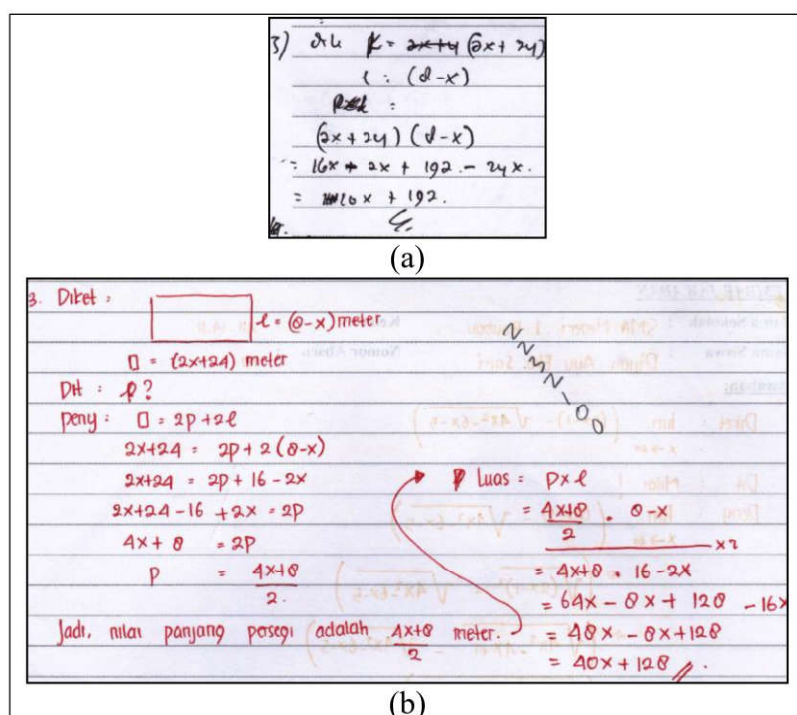 3) dik K = (2x + 24)
l : (8-x)
=
(2x + 24) (8-x)
= 16x + 2x + 192 - 24x.
= 20x + 192.
(a)
3. Diket :
l = (8-x) meter
□ = (2x+24) meter
Dit : p?
peny : □ = 2p + 2l
2x+24 = 2p + 2 (8-x)
2x+24 = 2p + 16 - 2x
2x+24-16 +2x = 2p
4x + 8 = 2p
p = 4x+8
2.
Jadi, nilai panjang persegi adalah 4x+8 meter.
2
Luas = p x l
= 4x+8 . 8-x
2
x2
= 4x+8 . 16-2x
= 64x - 8x + 128 - 16x
= 48x - 8x + 128
= 40x + 128 //.
(b)